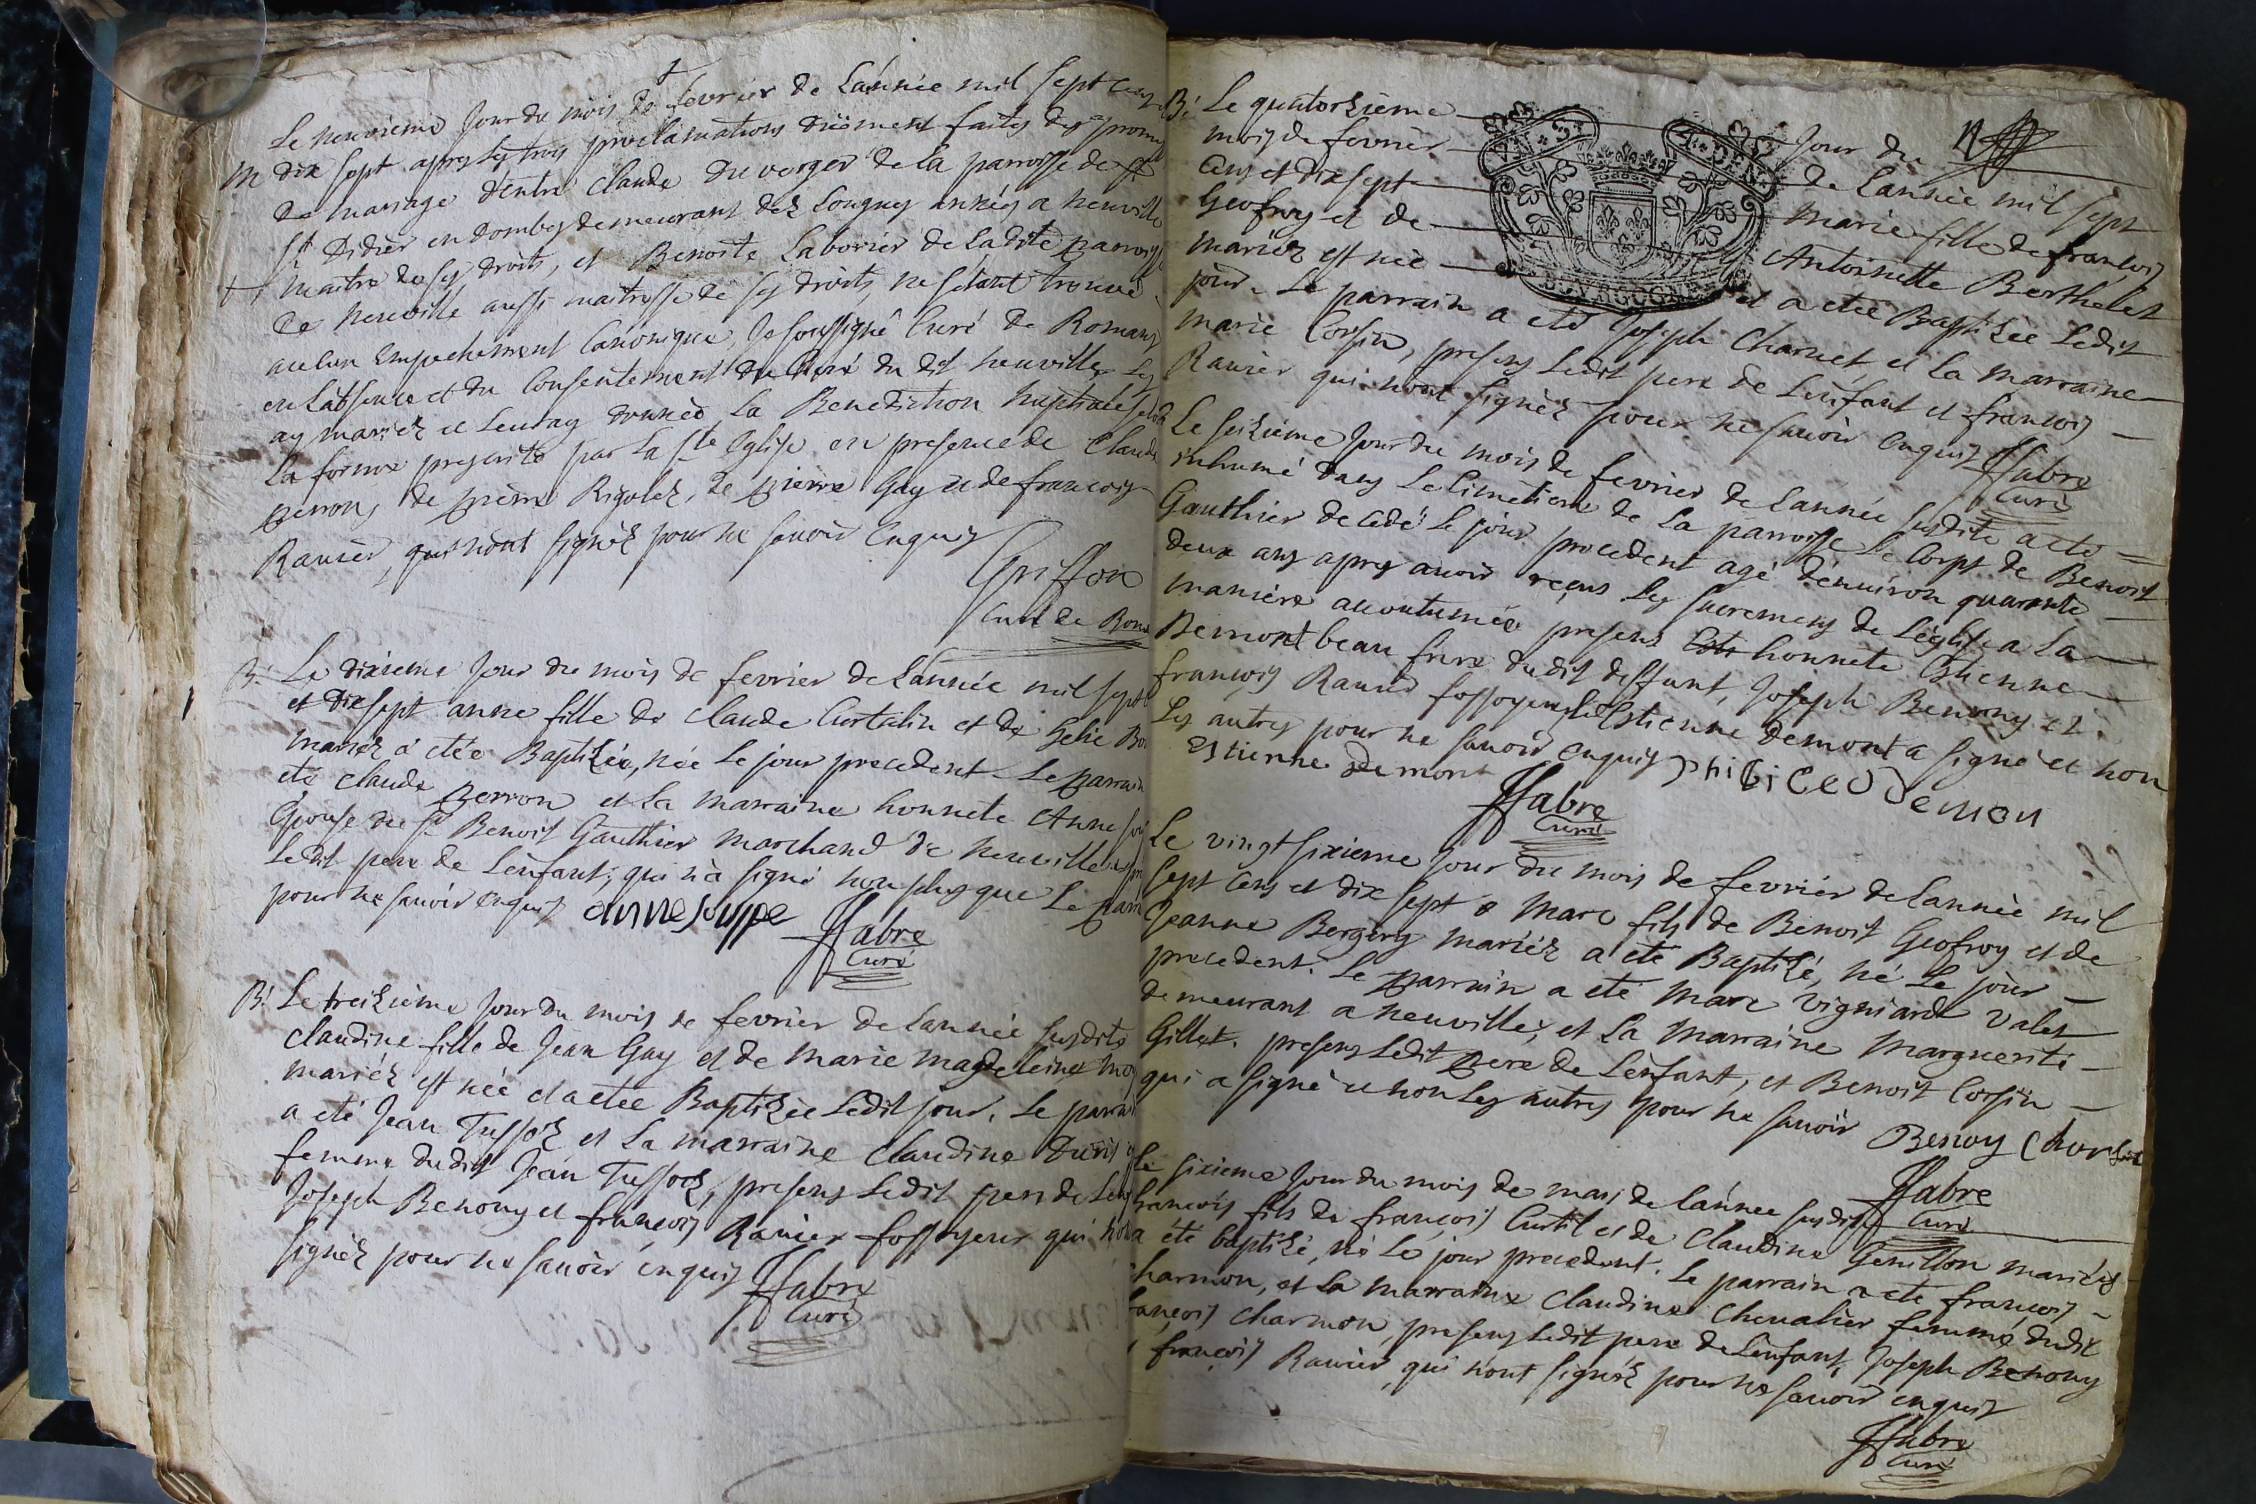 Le neuvieme Jour du mois de fevrier de Lannée mil sept cens
M dix sept apres les trois proclamations duëment faites des prome
de mariage d'entre Claude du verger de la parroisse de
St Didier en Dombes demeurant dez Longues années a neuville
maitre de ses droits, et Benoite Laborier de Ladite parroisse
de neuville aussi maitresse de ses droits, ne setant trouvé
aucun Empechement Canonique, Je soussigné Curé de Romans
en Labsence et du Consentement du Curé du dit neuville Les
ay mariez et Leur ay donnèe La Benediction Nuptiale selon
La forme prescrite par La Ste Eglise en presence de Claude
perrons de pierre Rigolez, de pierre Gay et de francois
Ranier, qui n'ont signéz pour ne savoir Enquis
Griffon
Curé de Rom
B. Le dixieme Jour du mois de fevrier de Lannée mil sept
et dix sept anne fille de Claude Curtalin et de
mariez a étée Baptizée, née Le jour precedent Le parrain
eté Claude perron et La marraine honnete Anne
Epouse du Sr Benoit Gauthier marchand de neuville
Ledit pere de Lenfant, qui n'a signé non plus que Le parr
pour ne savoir enquis anne souppe
ffabre
Curé
B. Le treizième Jour du mois de fevrier de Lannée susdite
Claudine fille de Jean Gay et de Marie magdeleine
mariéz est née et a etée Baptizèe Ledit jour. Le parrain
a eté Jean Tissot et La marraine Claudine Duris
femme dudit Jean Tissot, presens Ledit pere de Lenf
Joseph Benony et francois Ranier fossoyeur qui n'on
signéz pour ne savoir enquis
ffabre
Curé
B. Le quatorzième Jour du
mois de fevrier de Lannée mil sept
Cens et dix sept Marie fille de francois
Geofroy et de Antoinette Berthelet
mariéz est née et a etée Baptizée Ledit
jour. Le parrain a eté Joseph Charnet et La marraine
Marie Corsin, presens Ledit pere de Lenfant et francois
Ranier qui n'ont signéz pour ne savoir Enquis
ffabre
Curé
Le seizieme Jour du mois de fevrier de Lannée susdite a eté
inhumé dans Le Cimetiere de La parroisse Le Corps de Benoit
Gauthier decedé Le jour precedent agé d'environ quarante
deux ans apres avoir reçus Les sacremens de L'eglise a La
maniere accoutumée presens honnete Estienne
Demont beau frere dudit deffunt, Joseph Benony et
francois Ranier fossoyeur Led. Estienne demont a signé et non
Les autres pour ne savoir enquis
Estienne demont
ffabre
Curé
Le vingt sixieme Jour du mois de fevrier de Lannée mil
sept Cens et dix sept Marc fils de Benoit Geofroy et de
Jeanne Bergery mariéz a eté Baptizé, né Le jour
precedent. Le parrain a eté Marc vigniard valet
demeurant a neuville, et La marraine Marguerite
Gillet. presens Ledit pere de Lenfant, et Benoit Corsin
qui a signé et non Les autres pour ne savoir
Benoy
ffabre
Curé
Le sixieme Jour du mois de mars de lannee susdite
francois fils de francois Curtil et de Claudine Genillon mariéz
a été baptizé, né Le jour precedent. Le parrain a eté francois
Charmon, et La marraine Claudine Chevalier femme dudit
francois Charmon, presens Ledit pere de Lenfant, Joseph Benony
et francois Ranier, qui n'ont signéz pour ne savoir enquis
ffabre
Curé